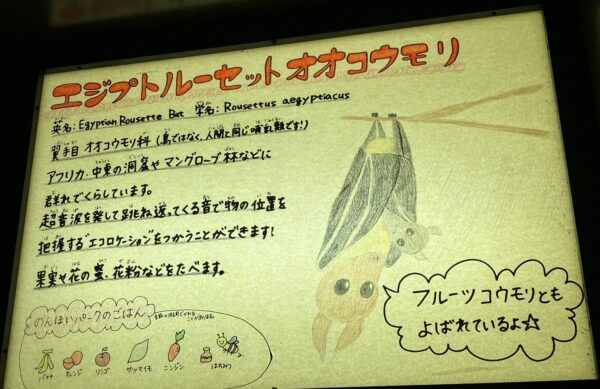 エジプトルーセットオオコウモリ
英名: Egyptian Rousette Bat 学名: Rousettus aegyptiacus
翼手目 オオコウモリ科 (鳥ではなく、人間と同じ哺乳類です!)
アフリカ、中東の洞窟やマングローブ林などに
群れでくらしています。
超音波を発して跳ね返ってくる音で物の位置を
把握する"エコロケーション"をつかうことができます!
果実や花の蜜、花粉などをたべます。
フルーツコウモリとも
よばれているよ☆
のんほいパークのごはん
バナナ オレンジ リンゴ サツマイモ ニンジン はちみつ